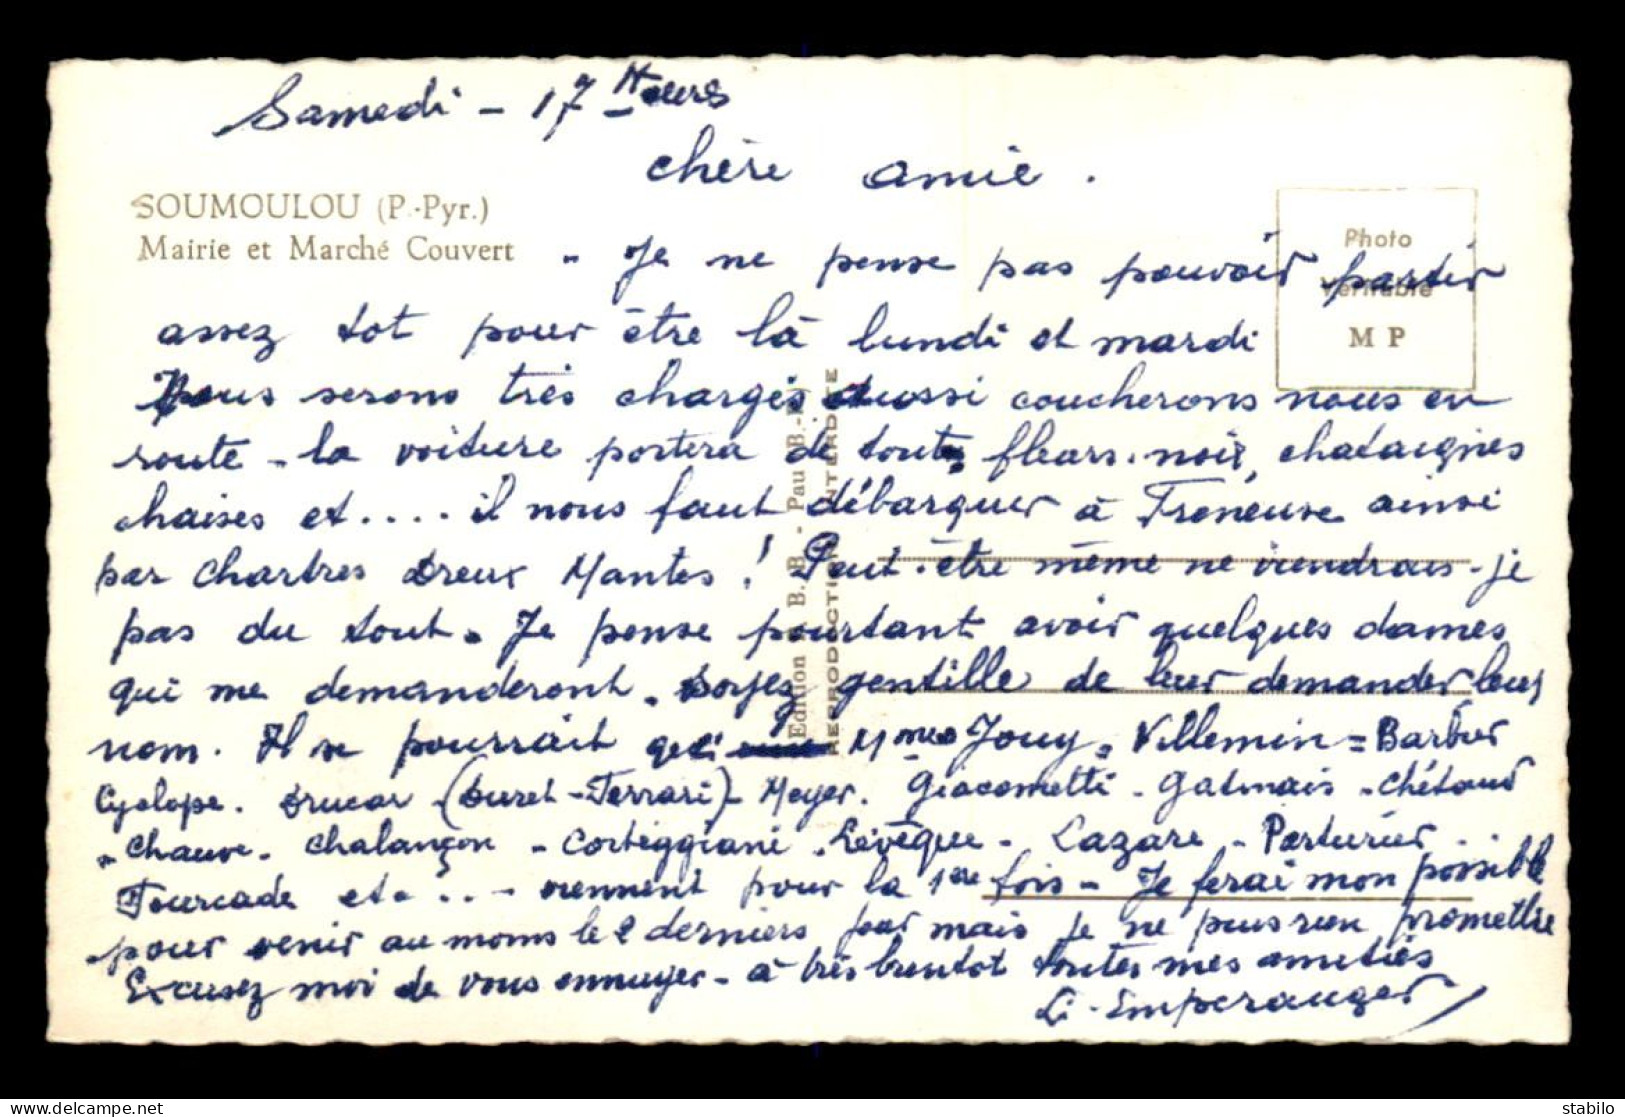 Samedi - 17 Heures
chère amie.
SOUMOULOU (P.-Pyr.)
Mairie et Marché Couvert
Photo
Véritable
M P
- Je ne pense pas pouvoir partir
assez tot pour être là lundi et mardi
Nous serons très chargés aussi coucherons nous en
route - la voiture portera de tout, fleurs. noix, chataignes
chaises et .... il nous faut débarquer à Freneuse ainsi
par Chartres Dreux Mantes ! Peut-être même ne viendrais-je
pas du tout. Je pense pourtant avoir quelques dames
qui me demanderont. Soyez gentille de leur demander leur
nom. Il se pourrait que Mmes Jouy, Villemin = Barbier
Cyclope. Drucar - (Duret - Ferrari) - Meyer. Giacometti - Gatinais - Chétaud
- Chauve - Chalançon - Corteggiani - Levêque - Lazare - Parturier
Fourcade et .. - viennent pour la 1ere fois - Je ferai mon possible
pour venir au moins le 2 derniers jour mais je ne puis rien promettre
Excusez moi de vous ennuyer - à très bientot toutes mes amitiés
Li. Imperauger
Edition B.B. - Pau (B.-P.)
REPRODUCTION INTERDITE
stabilo-fr